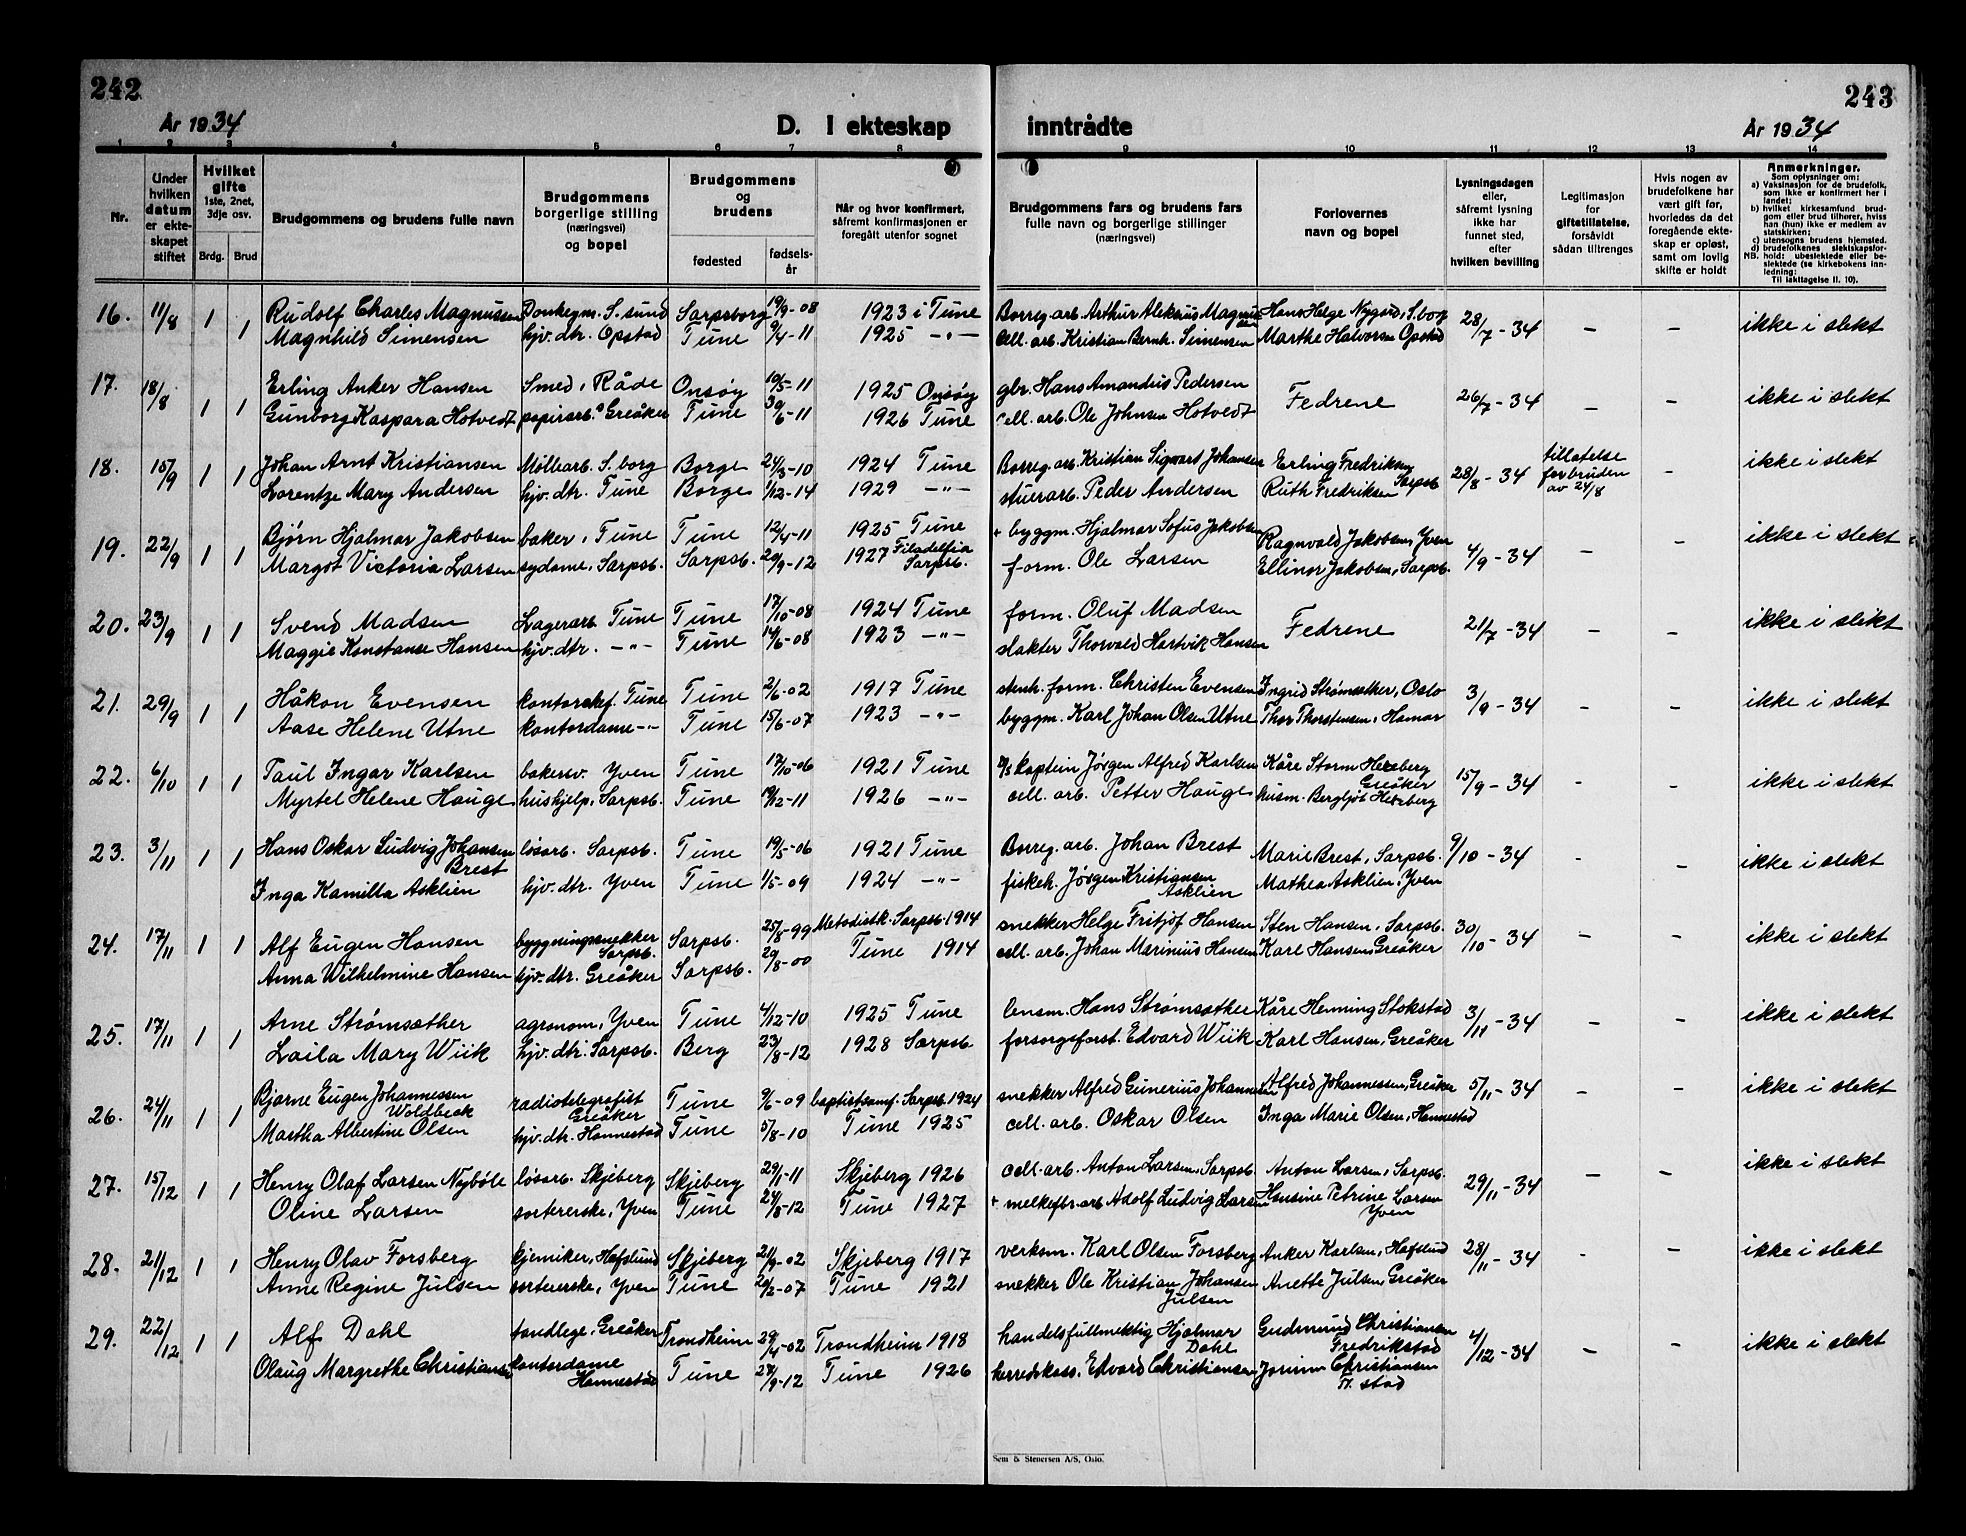 242
243
År 1934
D. I ekteskap inntrådte
År 1934
1 2 3 4 5 6 7 8 9 10 11 12 13 14
Nr.
Under hvilken datum er ekteskapet stiftet
Hvilket gifte
1ste, 2net, 3dje osv.
Brdg. Brud
Brudgommens og brudens fulle navn
Brudgommens borgerlige stilling (næringsvei) og bopel
Brudgommens og brudens
fødested
fødselsår
Når og hvor konfirmert, såfremt konfirmasjonen er foregått utenfor sognet
Brudgommens fars og brudens fars fulle navn og borgerlige stillinger (næringsvei)
Forlovernes navn og bopel
Lysningsdagen eller, såfremt lysning ikke har funnet sted, efter hvilken bevilling
Legitimasjon for giftetillatelse, forsåvidt sådan tiltrenges
Hvis nogen av brudefolkene har vært gift før, hvorledes da det foregående ekteskap er opløst, samt om lovlig skifte er holdt
Anmerkninger.
Som oplysninger om:
a) Vaksinasjon for de brudefolk, som ikke er konfirmert her i landet;
b) hvilket kirkesamfund brudgom eller brud tilhører, hviss han (hun) ikke er medlem av statskirken;
c) utensogns brudens hjemsted.
d) brudefolkenes slektskapsforhold: ubeslektede eller beslektede (se kirkebokens innledning:
NB. Til iakttagelse II. 10).
16. 11/8 1 Rudolf Charles Magnussen Donkeym. S.sund Sarpsborg 19/9-08 1923 i Tune Borreg. arb. Arthur Aleksius Magnussen Hans Helge Nygård, S.borg 28/7-34 – – ikke i slekt
1 Magnhild Simensen hjv. dtr. Opstad Tune 9/4-11 1925 -"- Cell. arb. Kristian Bernh. Simensen Marthe Halvorsen Opstad
17. 18/8 1 1 Erling Anker Hansen Smed, Råde Onsøy 10/5-11 1925 Onsøy gbr. Hans Amandus Pedersen Fedrene 26/7-34 – – ikke i slekt
Gunborg Kaspara Hotvedt papirarb. Greåker Tune 30/6-11 1926 Tune cell. arb. Ole Johnsen Hotvedt
18. 15/9 1 1 Johan Arnt Kristiansen Møllearb. S.borg Borge 24/3-10 1924 Tune Borreg. arb. Kristian Sigvard Johansen Erling Fredriksen 28/8-34 tillatelse for bruden av 24/8 – ikke i slekt
Lorentze Mary Andersen hjv. dtr. Tune Borge 1/12-14 1929 -"- stuerarb. Peder Andersen Ruth Fredriksen Sarpsb.
19. 22/9 1 1 Bjørn Hjalmar Jakobsen baker, Tune Tune 12/4-11 1925 Tune + byggm. Hjalmar Sofus Jakobsen Ragnvald Jakobsen, Yven 4/9-34 – – ikke i slekt
Margot Victoria Larsen sydame, Sarpsb. Sarpsb. 29/9-12 1927 Filadelfia Sarpsb. form. Ole Larsen Ellinor Jakobsen, Sarpsb.
20. 23/9 1 1 Svend Madsen Lagerarb. Tune Tune 17/10-08 1924 Tune form. Oluf Madsen Fedrene 21/7-34 – – ikke i slekt
Maggie Konstanse Hansen hjv. dtr. -"- Tune 14/6-08 1923 -"- slakter Thorvald Hartvik Hansen
21. 29/9 1 1 Håkon Evensen kontorchef. Tune Tune 2/6-02 1917 Tune stenh. form. Christen Evensen Ingrid Strømsæther, Oslo 3/9-34 – – ikke i slekt
Aase Helene Utne kontordame -"- Tune 15/6-07 1923 -"- byggm. Karl Johan Olsen Utne Thor Thorstensen, Hamar
22. 6/10 1 1 Paul Ingar Karlsen bakersv. Yven Tune 17/10-06 1921 Tune kaptein Jørgen Alfred Karlsen Kåre Storm Herzberg Greåker 15/9-34 – – ikke i slekt
Myrtel Helene Hauge hushjelp, Sarpsb. Tune 19/12-11 1926 -"- cell. arb. Petter Hauge husm. Bergljot Herzberg
23. 3/11 1 1 Hans Oskar Ludvig Johansen Brest løsarb. Sarpsb. Tune 19/5-06 1921 Tune Borreg. arb. Johan Brest Marie Brest, Sarpsb. 9/10-34 – – ikke i slekt
Inga Kamilla Asklien hjv. dtr. Yven Tune 1/5-09 1924 -"- fiskeh. Jørgen Kristiansen Asklien Mathea Asklien, Yven
24. 17/11 1 1 Alf Eugen Hansen byggningssnekker Sarpsb. Sarpsb. 25/8-99 Metodistk. Sarpsb. 1914 snekker Helge Fritjof Hansen Sten Hansen, Sarpsb. 30/10-34 – – ikke i slekt
Anna Wilhelmine Hansen hjv. dtr. Greåker Sarpsb. 29/8-00 Tune 1914 cell. arb. Johan Marinius Hansen Karl Hansen, Greåker
25. 17/11 1 1 Arne Strømsæther agronom, Yven Tune 4/12-10 1925 Tune lensm. Hans Strømsæther Kåre Henning Stokstad 3/11-34 – – ikke i slekt
Laila Mary Wiik hjv. dtr. Sarpsb. Berg 23/8-12 1928 Sarpsb. forsorgsforst. Edvard Wiik Karl Hansen, Greåker
26. 24/11 1 1 Bjarne Eugen Johannessen Woldbeck radiotelegrafist Greåker Tune 9/6-09 baptistsamf. Sarpsb. 1924 snekker Alfred Gunerius Johannessen Alfred Johannessen, Greåker 5/11-34 – – ikke i slekt
Martha Albertine Olsen hjv. dtr. Hannestad Tune 5/8-10 Tune 1925 cell. arb. Oskar Olsen Inga Marie Olsen, Hannestad
27. 15/12 1 1 Henry Olaf Larsen Nybøle løsarb. Skjeberg Skjeberg 29/1-11 Skjeberg 1926 cell. arb. Anton Larsen, Sarpsb. Anton Larsen, Sarpsb. 29/11-34 – – ikke i slekt
Oline Larsen sortererske, Yven Tune 24/8-12 Tune 1927 + melkefbr. arb. Adolf Ludvig Larsen Hansine Petrine Larsen Yven
28. 21/12 1 1 Henry Olav Forsberg kjemiker, Hafslund Skjeberg 21/9-02 Skjeberg 1917 verksm. Karl Olsen Forsberg Anker Karlsen, Hafslund 28/11-34 – – ikke i slekt
Anne Regine Julsen sortererske, Yven Tune 20/2-07 Tune 1921 snekker Ole Kristian Johansen Julsen Anette Julsen, Greåker
29. 22/12 1 1 Alf Dahl tandlege, Greåker Trondheim 29/4-02 Trondheim 1918 handelsfullmektig Hjalmar Dahl Gudmund Christiansen Fredrikstad 4/12-34 – – ikke i slekt
Olaug Margrethe Christiansen kontordame Hannestad Tune 27/9-12 Tune 1926 herredskass. Edvard Christiansen Jorunn Christiansen Fr.stad
Sem & Stenersen A/S, Oslo.